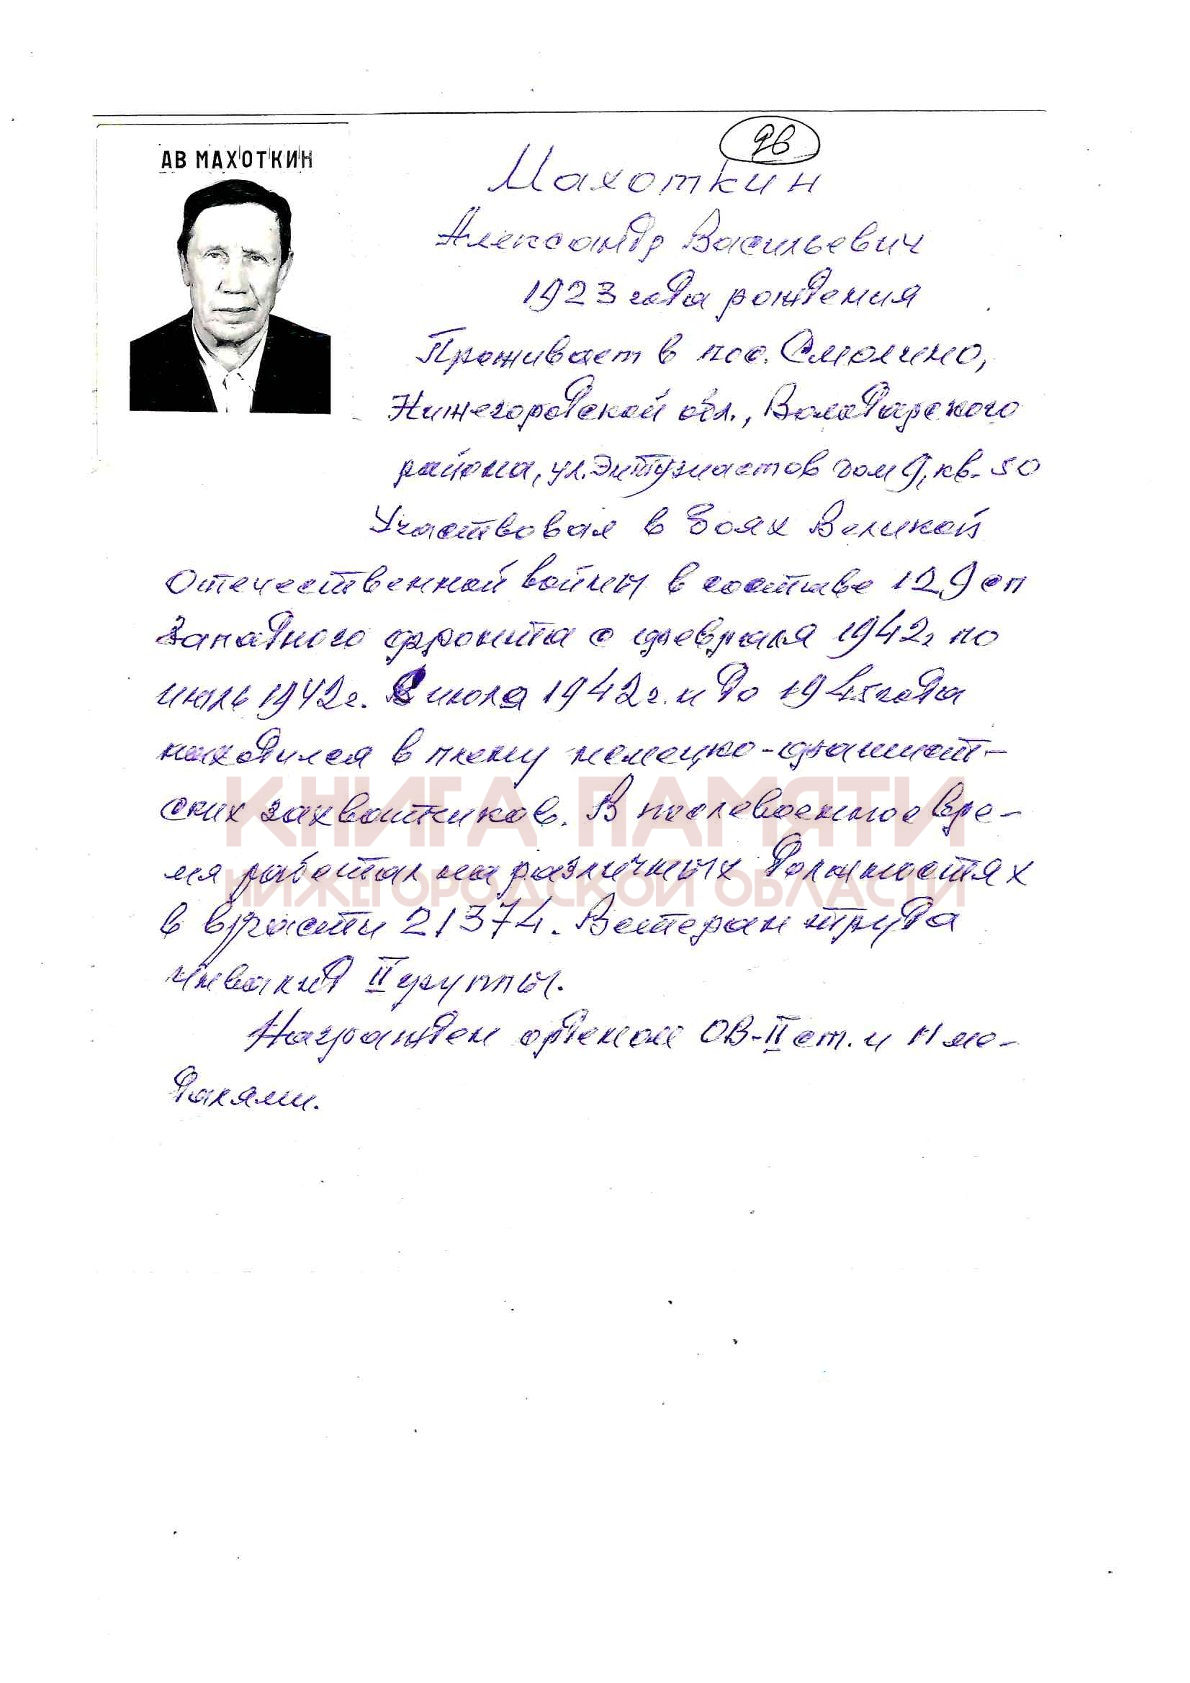 96
АВ МАХОТКИН
Махоткин
Александр Васильевич
1923 года рождения
Проживает в пос. Смолино,
Нижегородской обл., Володарского
района, ул. Энтузиастов дом 9, кв. 50
Участвовал в боях Великой
Отечественной войны в составе 129 сп
Западного фронта с февраля 1942г по
июль 1942г. С июля 1942г. и до 1945 года
находился в плену немецко-фашист-
ских захватчиков. В послевоенное вре-
мя работал на различных должностях
в в/части 21374. Ветеран труда
Инвалид II группы.
Награжден орденом ОВ-II ст. и 11 ме-
далями.
КНИГА ПАМЯТИ
НИЖЕГОРОДСКОЙ ОБЛАСТИ